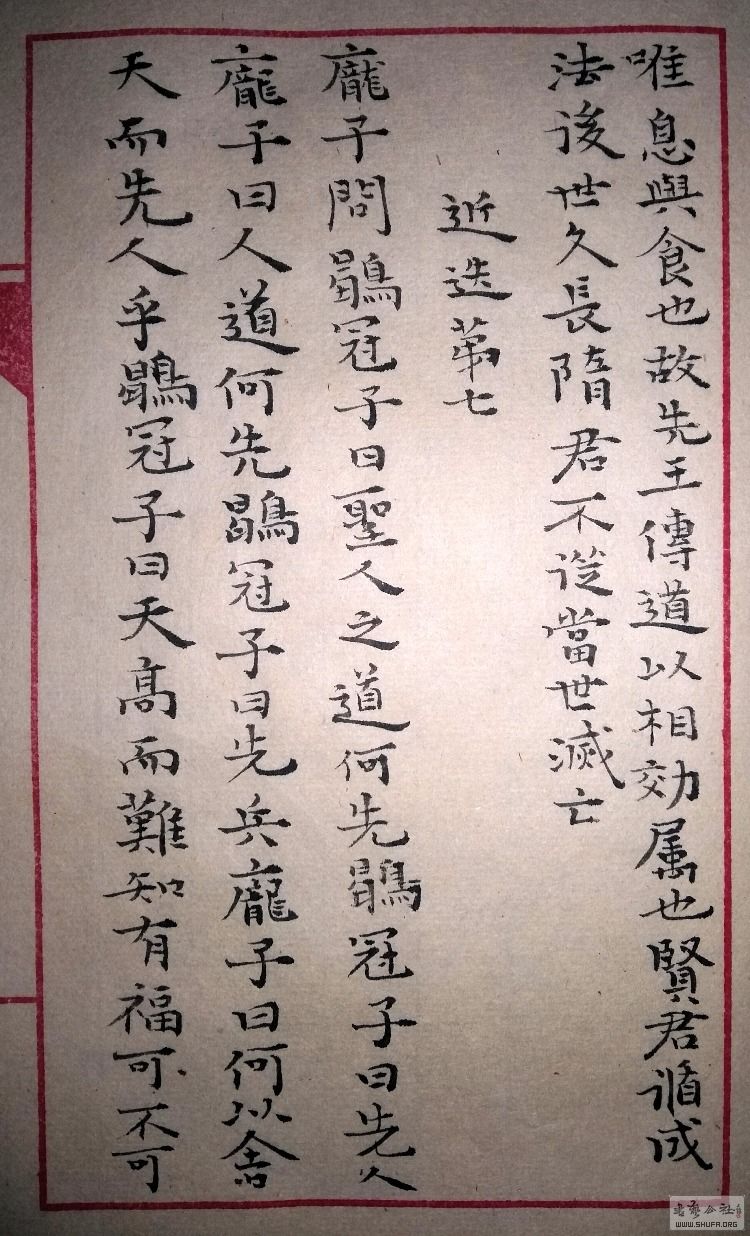 唯息與食也故先王傳道以相効属也賢君遁成
法後世久長隋君不從當世滅亡
近迭第七
龐子問鶡冠子曰聖人之道何先鶡冠子曰先人
龐子曰人道何先鶡冠子曰先兵龐子曰何以舍
天而先人乎鶡冠子曰天高而難知有福可不可
书艺公社
WWW.SHUFA.ORG